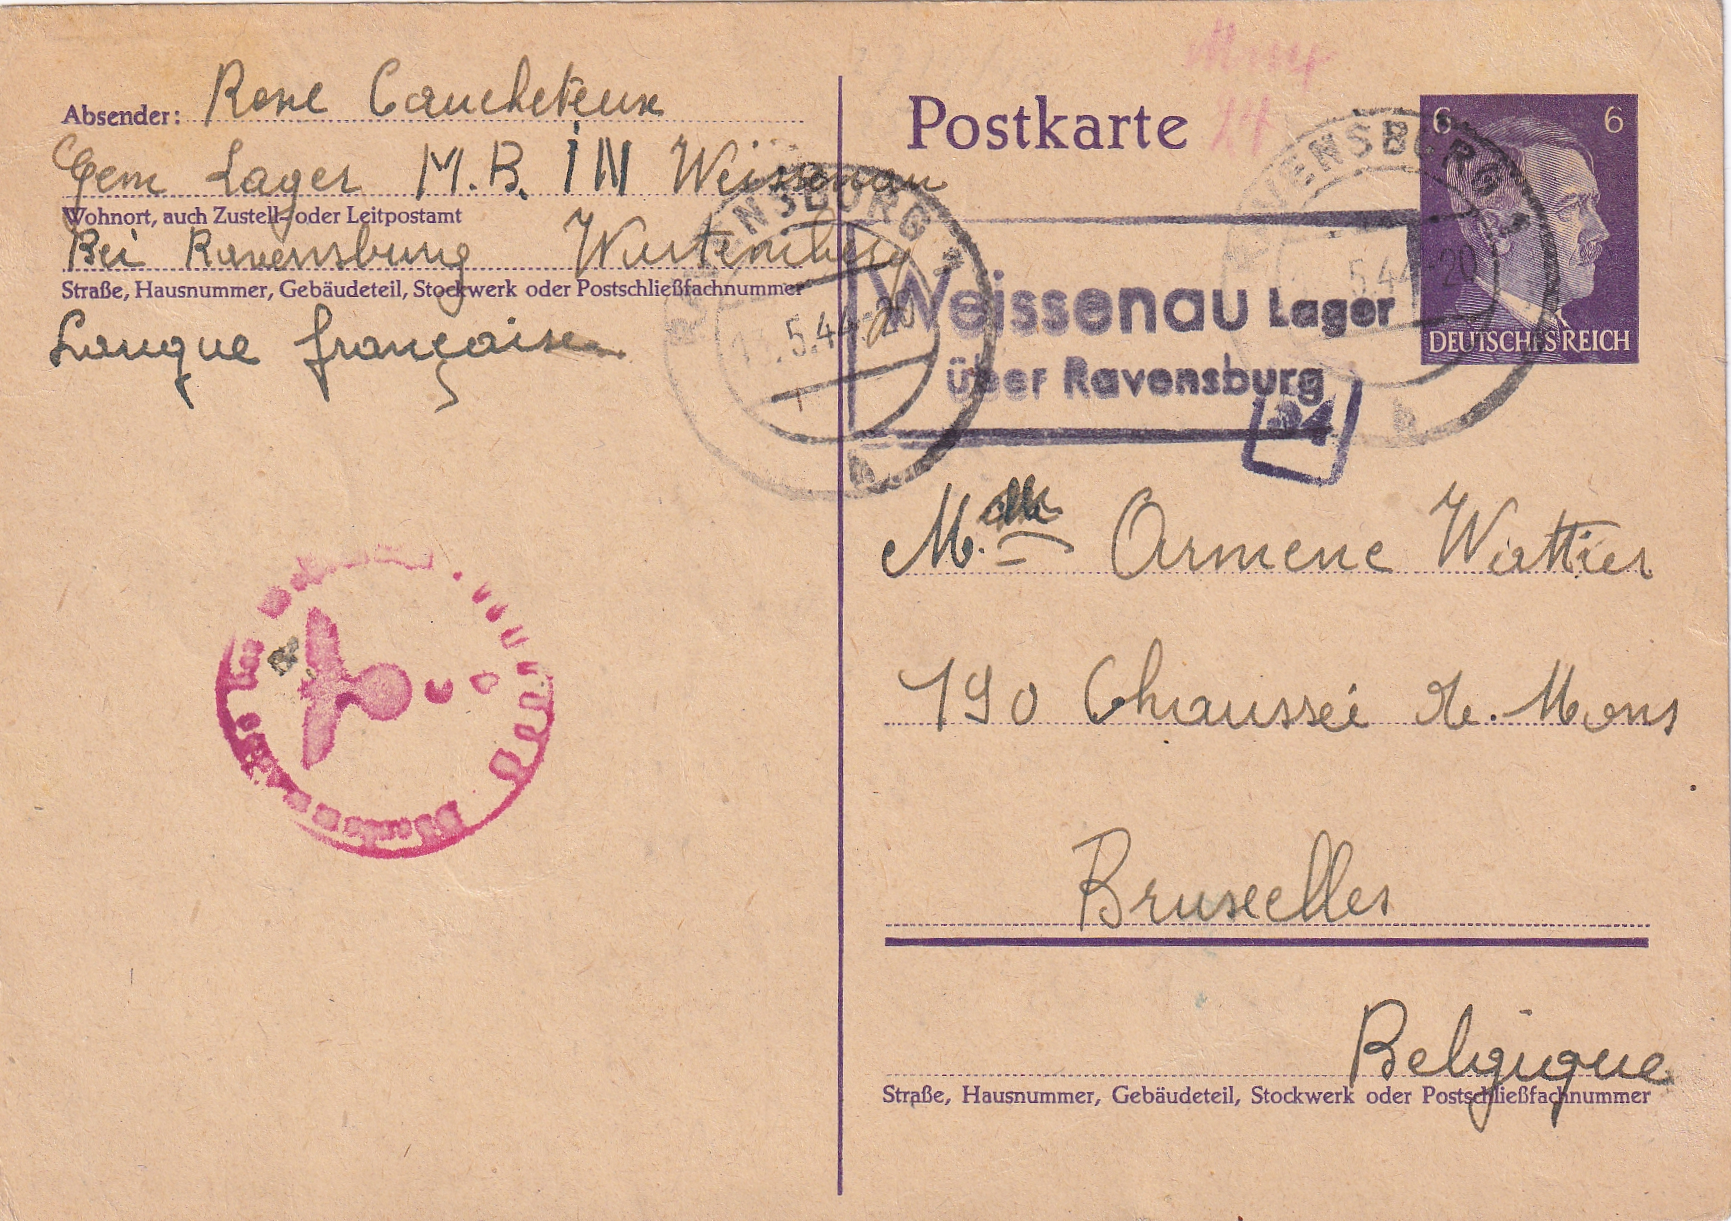 Postkarte
6 6
DEUTSCHES REICH
Absender: Rose Caucheteux
Gem Lager M.B. Weissenau
Wohnort, auch Zustell- oder Leitpostamt
Bei Ravensburg Wurtemberg
Straße, Hausnummer, Gebäudeteil, Stockwerk oder Postschließfachnummer
Langue française
RAVENSBURG 1
5.44-20
b
Weissenau Lager
über Ravensburg
RAVENSBURG 1
5.44-20
b
24
24
Melle Armene Wattier
190 Chaussée de. Mons
Bruxelles
Belgique
Straße, Hausnummer, Gebäudeteil, Stockwerk oder Postschließfachnummer